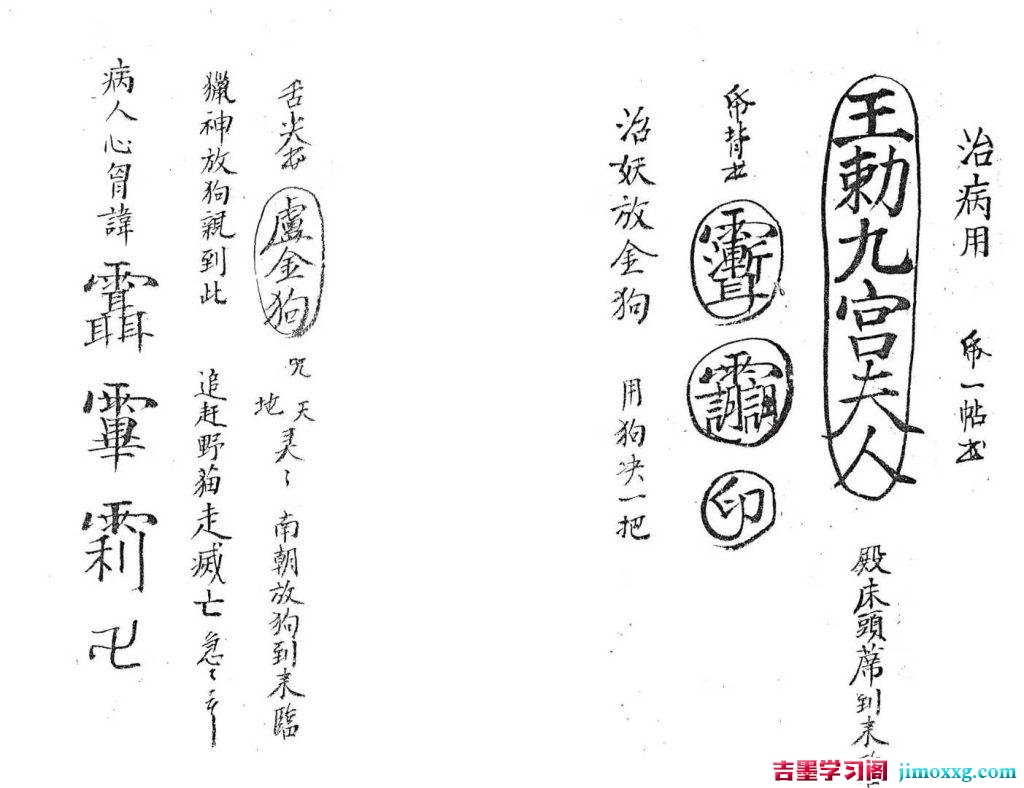 治病用 帋一帖書
王勅九宮夫人
殿床頭蓆到來
帋背書
印
治妖放金狗 用狗决一把
舌尖書 盧金狗 咒 天地灵〻 南朝放狗到来臨
獵神放狗親到此 追赶野猫走滅亡 急〻
病人心胷諱 卍
吉墨学习阁 jimoxxg.com